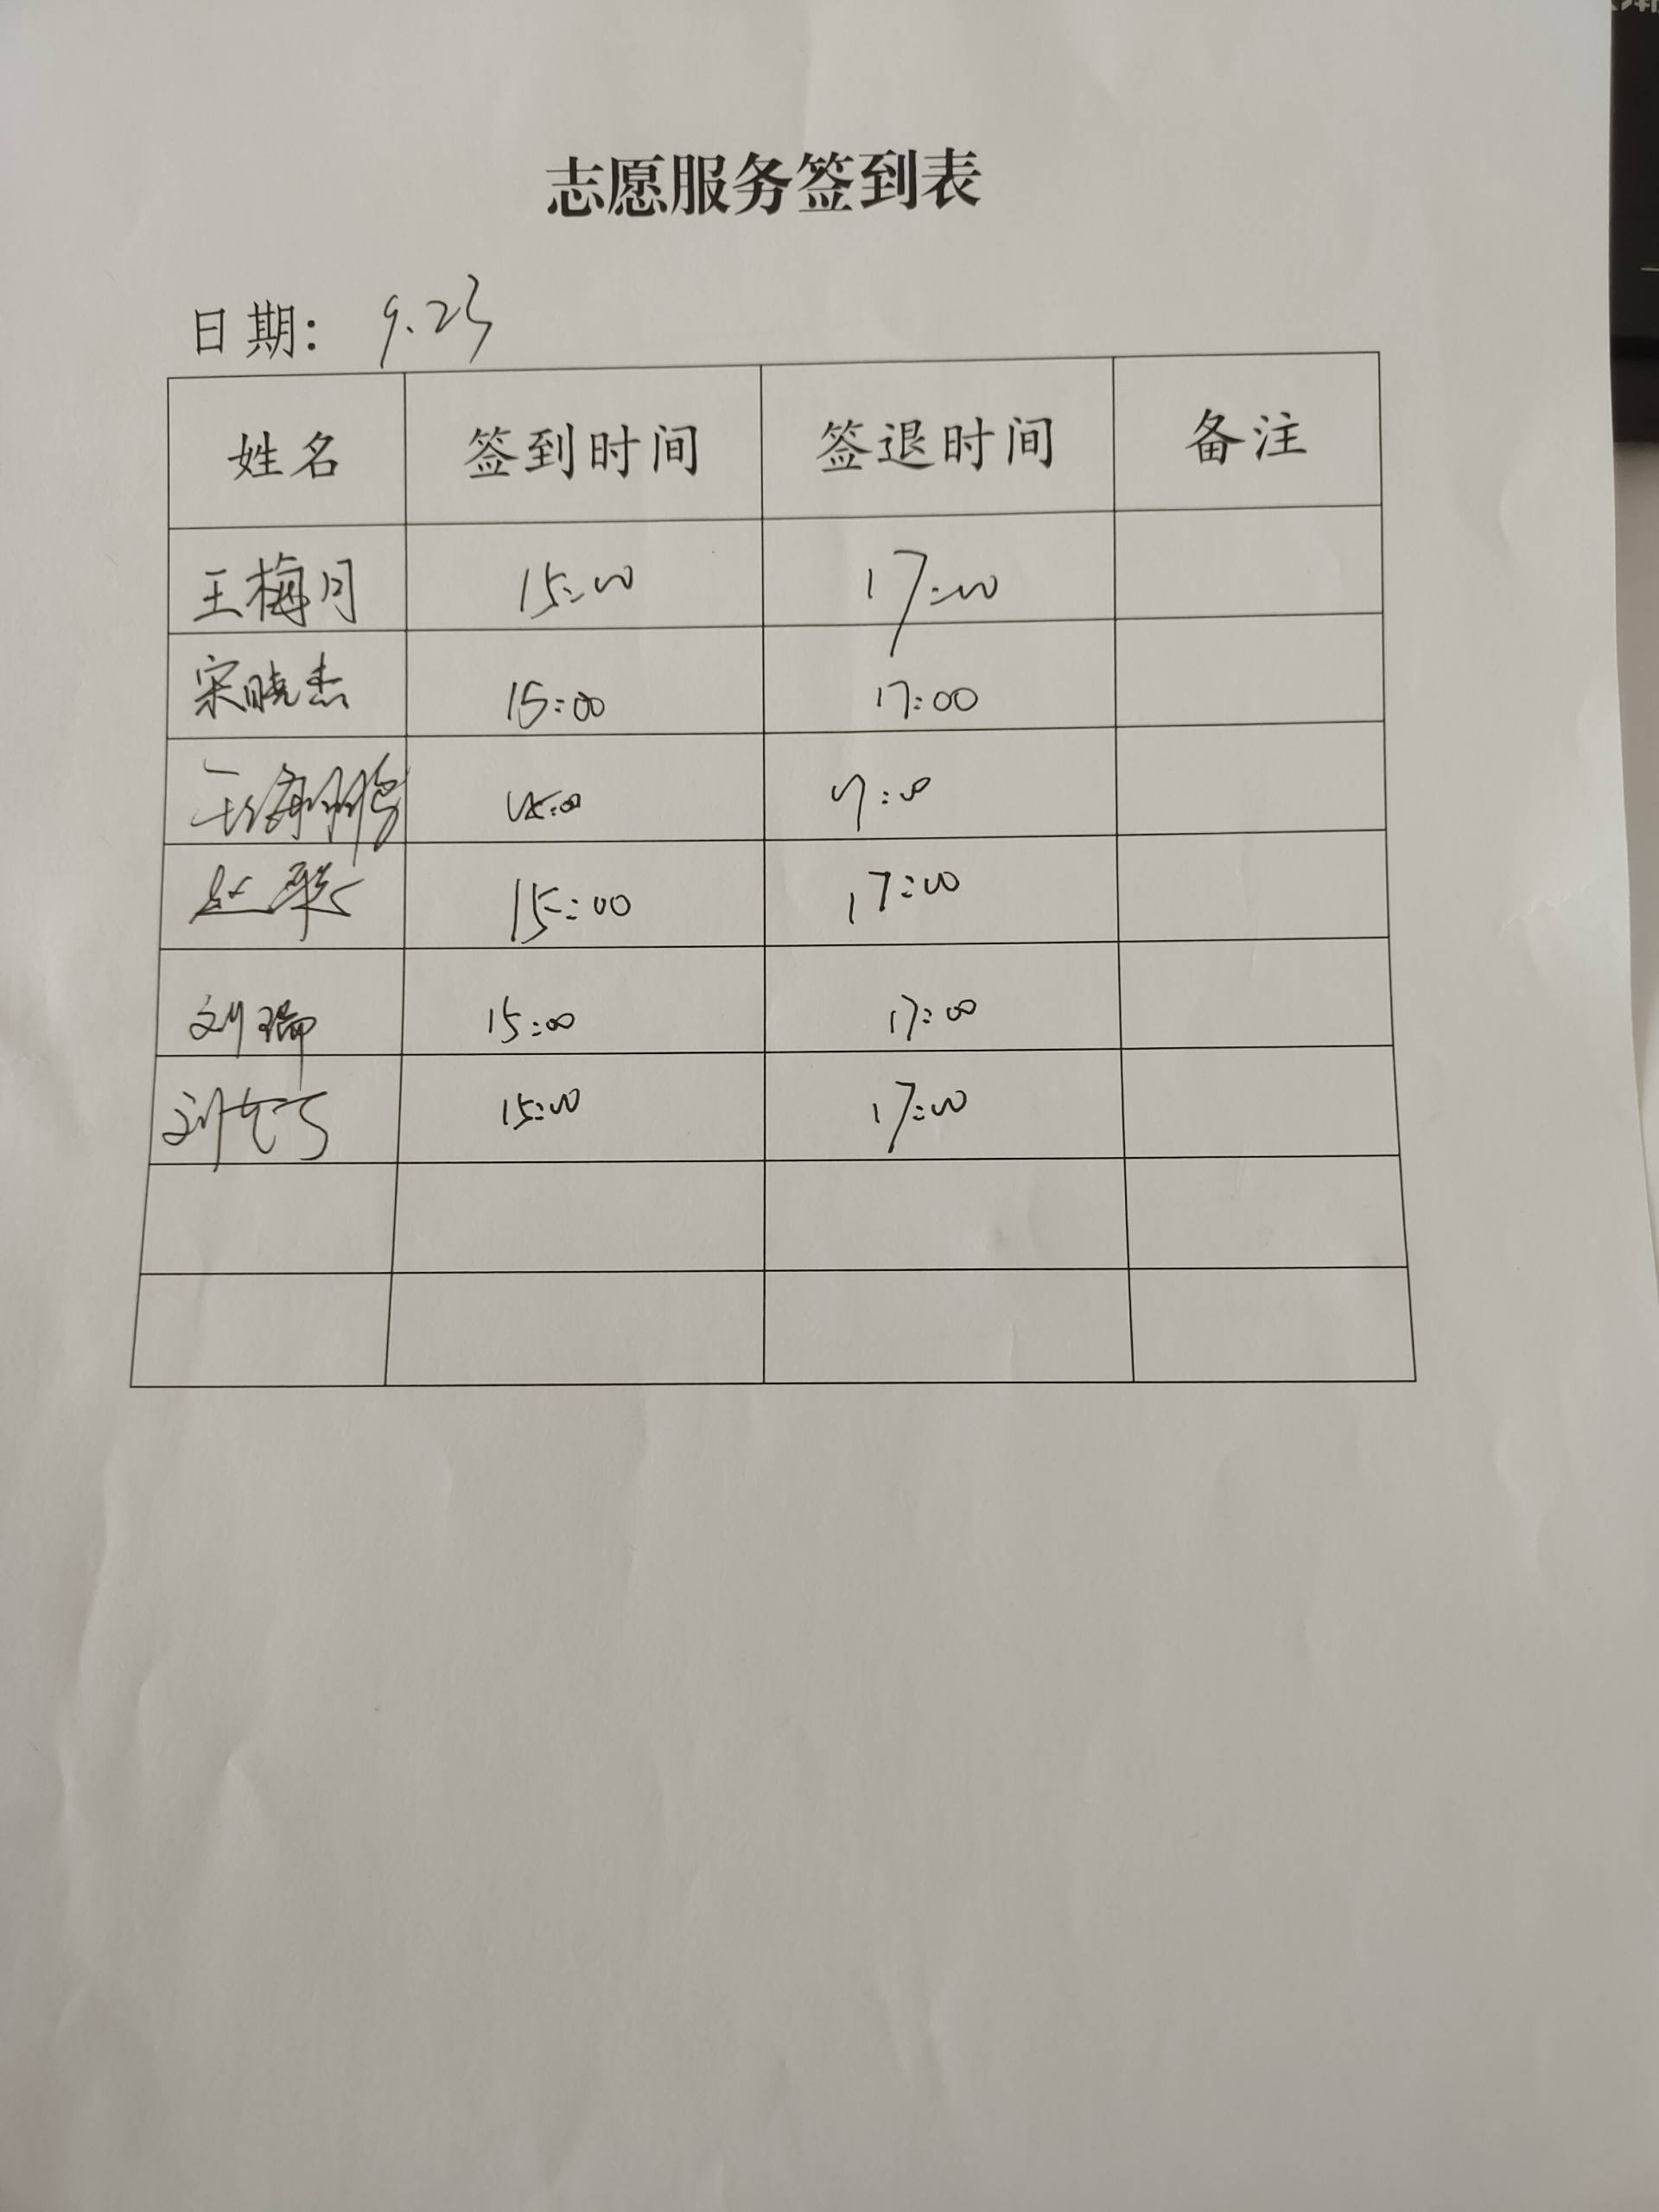 志愿服务签到表
日期: 9.23
姓名 签到时间 签退时间 备注
王梅月 15:00 17:00
宋晓杰 15:00 17:00
王海鹏 15:00 17:00
赵翠 15:00 17:00
刘瑞 15:00 17:00
刘 15:00 17:00